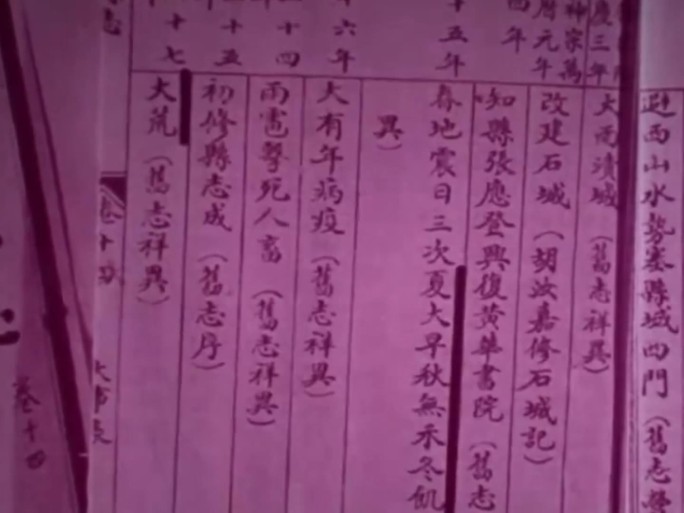 避西山水勢塞縣城四門（舊志
慶三年
大雨潰城（舊志祥異）
神宗萬
曆元年
改建石城（胡汝嘉修石城記）
四年
知縣張應登興復黃華書院（舊志
十五年
春地震日三次夏大旱秋無禾冬飢
異）
六年
大有年病疫（舊志祥異）
十四
雨雹擊死人畜（舊志祥異）
十五
初修縣志成（舊志序）
十七
大荒（舊志祥異）
志
卷十四
大事表
卷十四